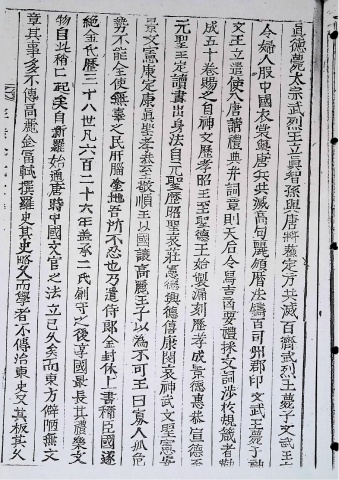 眞德薨太宗武烈王立眞智孫與唐將蘇定方共滅百濟武烈王薨子文武王立
令婦人服中國衣裳與唐兵共滅高句麗頒曆法鑄百司州郡印文武王薨子神
文王立遣使入唐請禮典幷詞章則天后令寫吉凶要禮採文詞涉於規箴者勒
成五十卷賜之自神文歷孝昭王至聖德王始製漏刻歷孝成景德惠恭宣德至
元聖王定讀書出身法自元聖歷昭聖哀莊憲德興德僖康閔哀神武文聖憲安
景文憲康定康眞聖孝恭至敬順王以國議高麗王子以為不可王曰寡人孤危
勢不能全使無辜之民肝腦塗地吾所不忍也乃遣侍郞金封休上書稱臣國遂
絶金代歷三十八世凡六百二十六年蓋承二氏刱守之後享國最長其禮樂文
物自此稍稍起矣自新羅始通唐時中國文官之法立已久矣而東方僻陋無文
章其事多不傳高麗金富軾撰羅史其史略矣而學者不傳治東史又其板其久